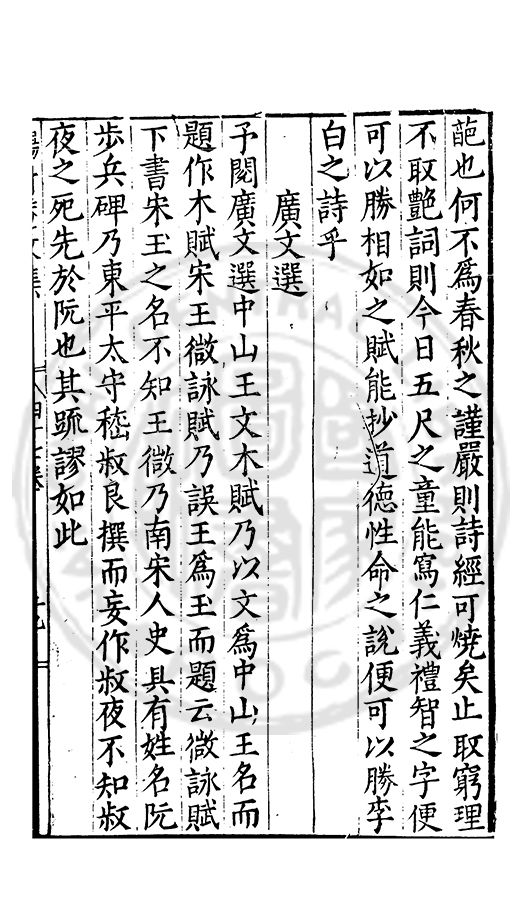 葩也何不爲春秋之謹嚴則詩經可燒矣止取窮理
不取艷詞則今日五尺之童能寫仁義禮智之字便
可以勝相如之賦能抄道德性命之說便可以勝李
白之詩乎
廣文選
予閱廣文選中山王文木賦乃以文爲中山王名而
題作木賦宋王微詠賦乃誤王爲玉而題云微詠賦
下書宋王之名不知王微乃南宋人史具有姓名阮
步兵碑乃東平太守嵇叔良撰而妄作叔夜不知叔
夜之死先於阮也其踈謬如此